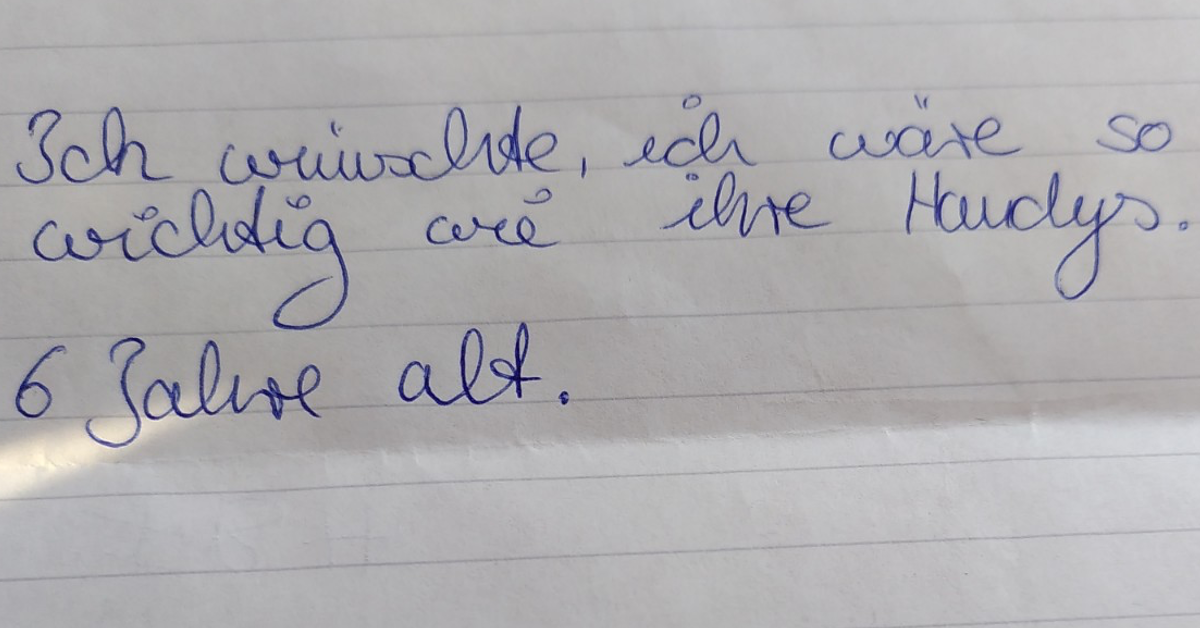 Ich wünschte, ich wäre so
wichtig wie ihre Handys.
6 Jahre alt.